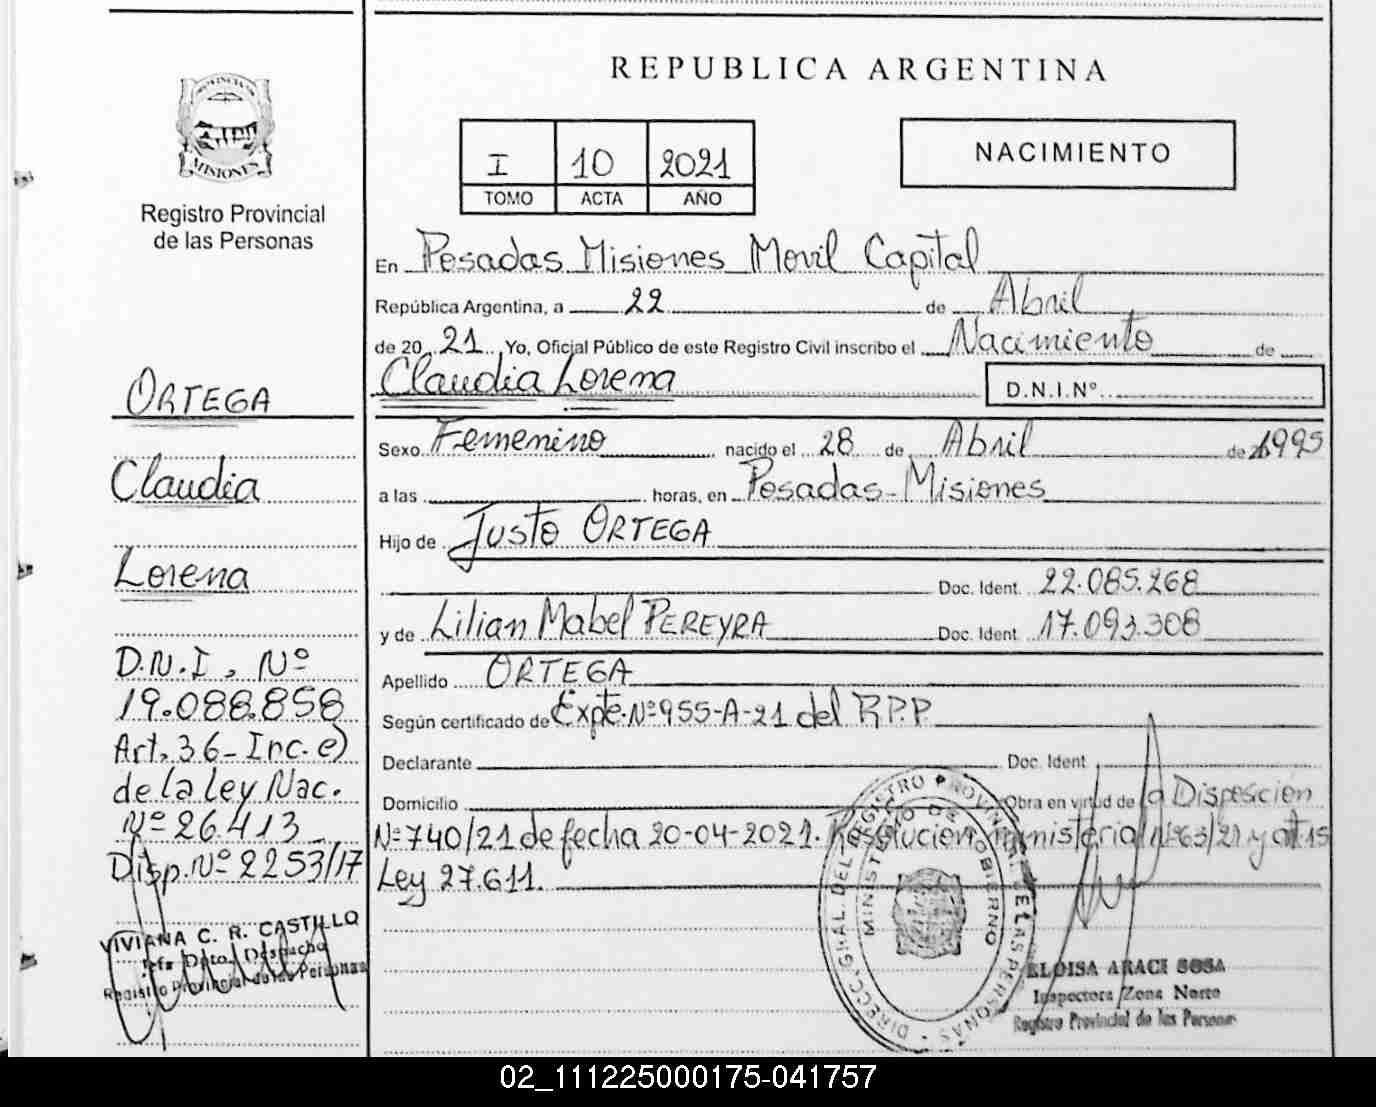 REPUBLICA ARGENTINA
PROVINCIA DE
MISIONES
Registro Provincial
de las Personas
I 10 2021
TOMO ACTA AÑO
NACIMIENTO
En Posadas Misiones Movil Capital
República Argentina, a 22 de Abril
de 20 21 Yo, Oficial Público de este Registro Civil inscribo el Nacimiento de
Claudia Lorena D.N.I.Nº
Sexo Femenino nacido el 28 de Abril de 1995
a las horas, en Posadas-Misiones
Hijo de Justo ORTEGA
Doc. Ident. 22.085.268
y de Lilian Mabel PEREYRA Doc. Ident 17.093.308
Apellido ORTEGA
Según certificado de Expte.Nº955-A-21 del R.P.P.
Declarante Doc. Ident
Domicilio Obra en virtud de la Disposición
Nº740/21 de fecha 20-04-2021. Resolucion ministerial y art 15
Ley 27.611.
ORTEGA
Claudia
Lorena
D.N.I, Nº
19.088.858
Art, 36-Inc. e)
de la Ley Nac.
Nº 26.413
Disp. Nº 2253/17
VIVIANA C. R. CASTILLO
Jefa Dpto. Despacho
Registro Provincial de las Personas
DIRECC. GRAL. DEL REGISTRO PROVINCIAL DE LAS PERSONAS
MINISTERIO DE GOBIERNO
ELOISA ARACI SOSA
Inspectora Zona Norte
Registro Provincial de las Personas
02_111225000175-041757